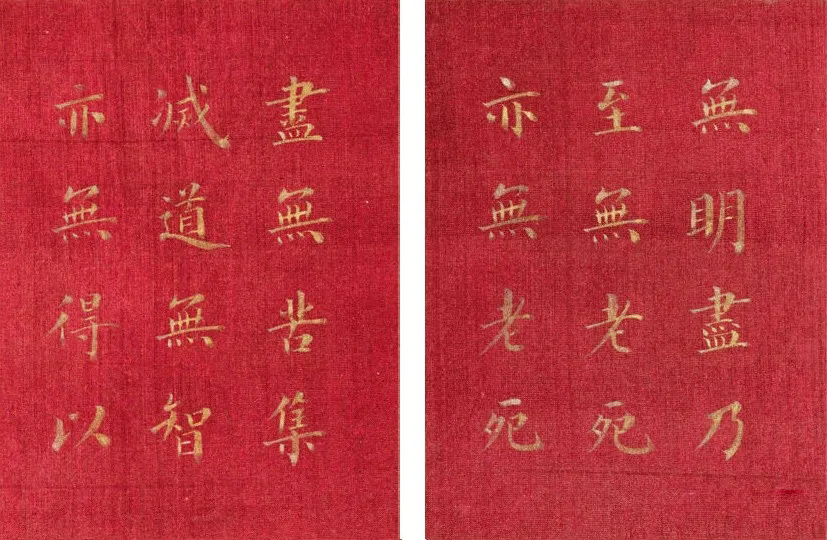 無明盡乃
至無老死
亦無老死
盡無苦集
滅道無智
亦無得以